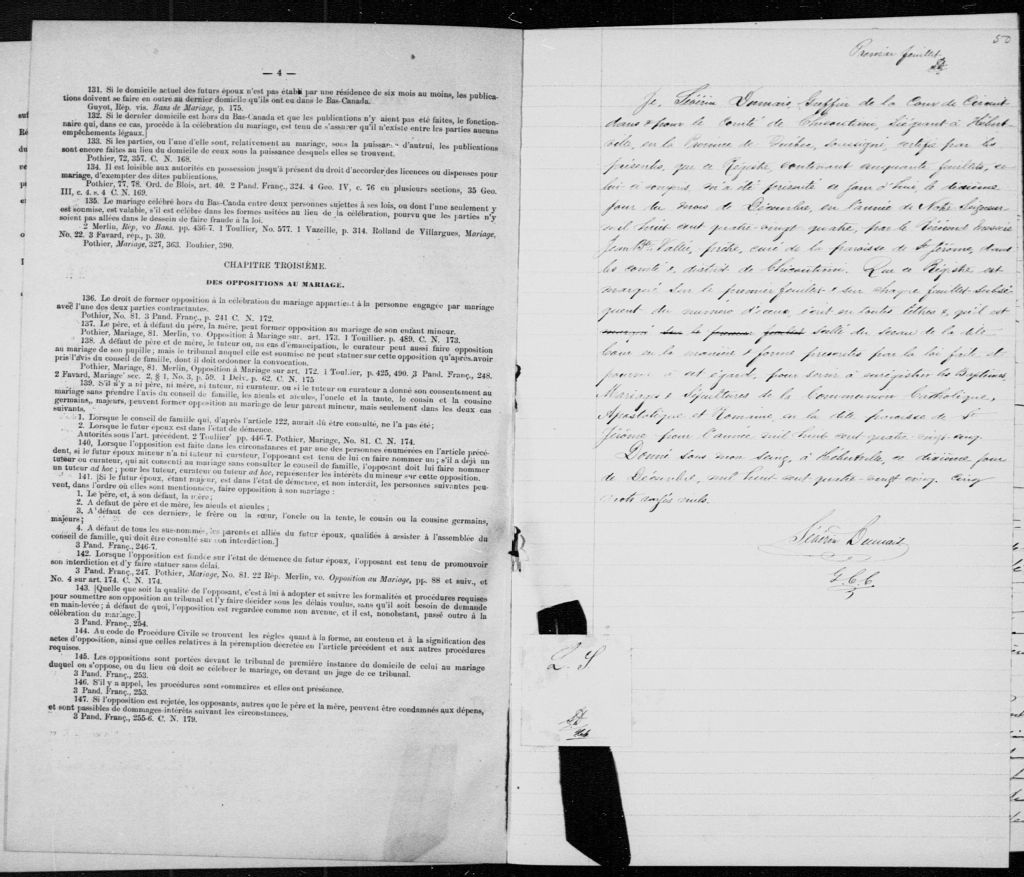 — 4 —
131. Si le domicile actuel des futurs époux n'est pas établi par une résidence de six mois au moins, les publica-
tions doivent se faire en outre au dernier domicile qu'ils ont eu dans le Bas-Canada.
Guyot, Rép. vis. Bans de Mariage, p. 175.
132. Si le dernier domicile est hors du Bas-Canada et que les publications n'y aient pas été faites, le fonction-
naire qui, dans ce cas, procède à la célébration du mariage, est tenu de s'assurer qu'il n'existe entre les parties aucuns
empêchements légaux.]
133. Si les parties, ou l'une d'elle sont, relativement au mariage, sous la puissance d'autrui, les publications
sont encore faites au lieu du domicile de ceux sous la puissance desquels elles se trouvent.
Pothier, 72, 357. C. N. 168.
134. Il est loisible aux autorités en possession jusqu'à présent du droit d'accorder des licences ou dispenses pour
mariage, d'exempter des dites publications.
Pothier, 77, 78. Ord. de Blois, art. 40. 2 Pand. Franç., 324. 4 Geo. IV, c. 76 en plusieurs sections, 35 Geo.
III, c. 4. s. 4 C. N. 169.
135. Le mariage célébré hors du Bas-Canda entre deux personnes sujettes à ses lois, ou dont l'une seulement y
est soumise, est valable, s'il est célébré dans les formes usitées au lieu de la célébration, pourvu que les parties n'y
soient pas allées dans le dessein de faire fraude à la loi.
2 Merlin, Rép, vo Bans. pp. 436-7. 1 Toullier, No. 577. 1 Vazeille, p. 314. Rolland de Villargues, Mariage,
No. 22. 3 Favard, rép., p. 30.
Pothier, Mariage, 327, 363. Bouhier, 390.
CHAPITRE TROISIÈME.
DES OPPOSITIONS AU MARIAGE.
136. Le droit de former opposition à la célébration du mariage appartient à la personne engagée par mariage
avec l'une des deux parties contractantes.
Pothier, No. 81. 3 Pand. Franç., p. 241 C. N. 172.
137. Le père, et à défaut du père, la mère, peut former opposition au mariage de son enfant mineur.
Pothier, Mariage, 81. Merlin, vo. Opposition à Mariage sur. art. 173. 1 Touillier. p. 489. C. N. 173.
138. A défaut de père et de mère, le tuteur ou, au cas d'émancipation, le curateur peut aussi faire opposition
au mariage de son pupille; mais le tribunal auquel elle est soumise ne peut statuer sur cette opposition qu'après avoir
pris l'avis du conseil de famille, dont il doit ordonner la convocation.
Pothier, Mariage, 81. Merlin, Opposition à Mariage sur art. 172. 1 Toullier, p. 425, 490, 3 Pand. Franç., 248.
2 Favard, Mariage' sec. 2, § 1, No. 3, p. 59. 1 Delv. p. 62. C. N. 175
139. S'il n'y a ni père, ni mère, ni tuteur, ni curateur, ou si le tuteur ou curateur a donné son consentement au
mariage sans prendre l'avis du conseil de famille, les aïeuls et aïeules, l'oncle et la tante, le cousin et la cousine
germains, majeurs, peuvent former opposition au mariage de leur parent mineur, mais seulement dans les deux cas
suivants.
1. Lorsque le conseil de famille qui, d'après l'article 122, aurait dû être consulté, ne l'a pas été;
2. Lorsque le futur époux est dans l'état de démence.
Autorités sous l'art. précédent. 2 Toullier' pp. 446-7. Pothier, Mariage, No. 81. C. N. 174.
140. Lorsque l'opposition est faite dans les circonstances et par une des personnes énumérées en l'article précé-
dent, si le futur époux mineur n'a ni tuteur ni curateur, l'opposant est tenu de lui en faire nommer un; s'il a déjà un
tuteur ou curateur, qui ait consenti au mariage sans consulter le conseil de famille, l'opposant doit lui faire nommer
un tuteur ad hoc; pour les tuteur, curateur ou tuteur ad hoc, représenter les intérêts du mineur sur cette opposition.
141. [Si le futur époux, étant majeur, est dans l'état de démence, et non interdit, les personnes suivantes peu-
vent, dans l'ordre où elles sont mentionnées, faire opposition à son mariage:
1. Le père, et, à son défaut, la mère;
2. A défaut de père et de mère, les aïeuls et aïeules;
3. A défaut de ces derniers, le frère ou la sœur, l'oncle ou la tente, le cousin ou la cousine germains,
majeurs;
4. A défaut de tous les sus-nommés, les parents et alliés du futur époux, qualifiés à assister à l'assemblée du
conseil de famille, qui doit être consulté sur son interdiction.]
3 Pand. Franç., 246-7.
142. Lorsque l'opposition est fondée sur l'état de démence du futur époux, l'opposant est tenu de promouvoir
son interdiction et d'y faire statuer sans délai.
3 Pand. Franç., 247. Pothier, Mariage, No. 81. 22 Rép. Merlin, vo. Opposition au Mariage, pp. 88 et suiv., et
No. 4 sur art. 174. C. N. 174.
143. [Quelle que soit la qualité de l'opposant, c'est à lui à adopter et suivre les formalités et procédures requises
pour soumettre son opposition au tribunal et l'y faire décider sous les délais voulus, sans qu'il soit besoin de demande
en main-levée; à défaut de quoi, l'opposition est regardée comme non avenue, et il est, nonobstant, passé outre à la
célébration du mariage.]
3 Pand. Franç., 254.
144. Au code de Procédure Civile se trouvent les règles quant à la forme, au contenu et à la signification des
actes d'opposition, ainsi que celles relatives à la péremption décrétée en l'article précédent et aux autres procédures
requises.
145. Les oppositions sont portées devant le tribunal de première instance du domicile de celui au mariage
duquel on s'oppose, ou du lieu où doit se célébrer le mariage, ou devant un juge de ce tribunal.
3 Pand. Franç., 253.
146. S'il y a appel, les procédures sont sommaires et elles ont préséance.
3 Pand. Franç., 253.
147. Si l'opposition est rejetée, les opposants, autres que le père et la mère, peuvent être condamnés aux dépens,
et sont passibles de dommages-intérêts suivant les circonstances.
3 Pand. Franç., 255-6. C. N. 179.
50
Premier feuillet
Je, Séverin Dumais Greffier de la Cour de Circuit
dans & pour le Comté de Chicoutimi, Siégeant à Hébert-
ville, en la Province de Québec, soussigné, certifie par les
présentes, que ce Régistre, contenant cinquante feuillets, ce-
lui ci compris, m'a été présenté ce jour d'hui, le dixième
jour du mois de Décembre, en l'année de Notre Seigneur
mil huit cent quatre-vingt quatre, par le Révérend Messire
Jean Bte Vallée, prêtre, curé de la paroisse de St Jérôme, dans
les comté & district de Chicoutimi. Que ce Régistre est
marqué sur le premier feuillet & sur chaque feuillet subsé-
quent du numéro d'iceux, écrit en toutes lettres &, qu'il est
scellé du sceau de la dite
Cour en la manière & forme prescrites par la loi faite et
pourvue à cet égard, pour servir à enrégistrer les Baptêmes,
Mariages & Sépultures de la Communion Catholique,
Apostolique et Romaine en la dite paroisse de St
Jérôme pour l'année mil huit cent quatre-vingt-cinq.
Donné sous mon seing, à Hébertville, ce dixième jour
de Décembre, mil huit cent quatre-vingt cinq. Cinq
mots rayés nuls.
Séverin Dumais
G.C.C.
L. S